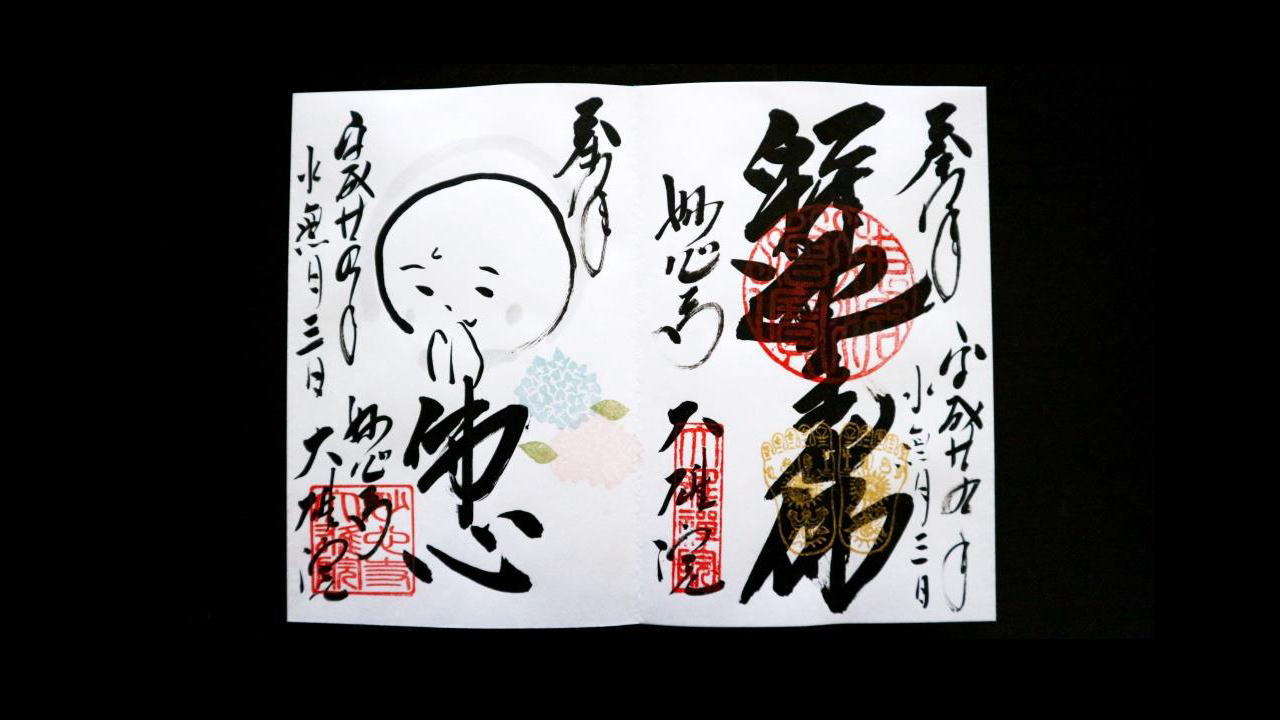 奉拝
平成廿九年
水無月三日
妙心寺
大雄院
奉拝
佛心
妙心寺
大雄院
平成廿九年
水無月三日